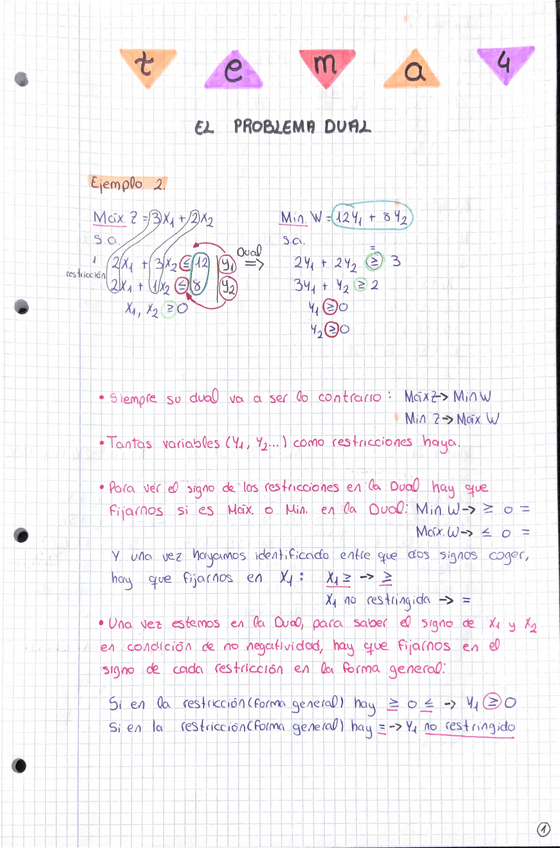 tema 4
EL PROBLEMA DUAL
Ejemplo 2.
Máx Z = 3X1 + 2X2
s.a.
restricción
2X1 + 3X2 ≤ 12 | Y1
2X1 + 1X2 ≤ 8 | Y2
X1, X2 ≥ 0
Dual
⇒
Min W = 12Y1 + 8Y2
s.a.
=
2Y1 + 2Y2 ≥ 3
3Y1 + Y2 ≥ 2
Y1 ≥ 0
Y2 ≥ 0
• Siempre su dual va a ser lo contrario: Máx Z → Min W
Min Z → Máx W
• Tantas variables (Y1, Y2...) como restricciones haya.
• Para ver el signo de las restricciones en la Dual hay que
fijarnos si es Máx o Min. en la Dual: Min W → ≥ o =
Máx. W → ≤ o =
Y una vez hayamos identificado entre que dos signos coger,
hay que fijarnos en X1: X1 ≥ → ≥
X1 no restringida → =
• Una vez estemos en la Dual, para saber el signo de X1 y X2
en condición de no negatividad, hay que fijarnos en el
signo de cada restricción en la forma general:
Si en la restricción (forma general) hay ≥ o ≤ → Y1 ≥ 0
Si en la restricción (forma general) hay = → Y1 no restringido
1